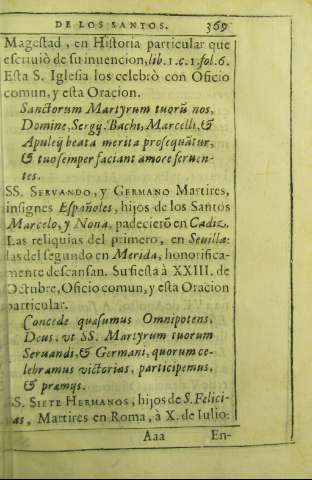 DE LOS SANTOS. 369
Magestad, en Historia particular que
escriuiò de su inuencion, lib. 1. c. 1. fol. 6.
Esta S. Iglesia los celebrò con Oficio
comun, y esta Oracion.
Sanctorum Martyrum tuorũ nos,
Domine, Sergij, Bachi, Marcelli, &
Apuleij beata merita prosequãtur,
& tuo semper faciant amore feruen-
tes.
SS. SERVANDO, y GERMANO Martires,
insignes Españoles, hijos de los Santos
Marcelo, y Nona, padecierõ en Cadiz.
Las reliquias del primero, en Seuilla:
las del segundo en Merida, honorifica-
mente descansan. Su fiesta à XXIII. de
Octubre, Oficio comun, y esta Oracion
particular.
Concede quæsumus Omnipotens,
Deus, vt SS. Martyrum tuorum
Seruandi, & Germani, quorum ce-
lebramus victorias, participemus,
& præmijs.
SS. SIETE HERMANOS, hijos de S. Felici-
tas, Martires en Roma, à X. de Iulio:
Aaa En-